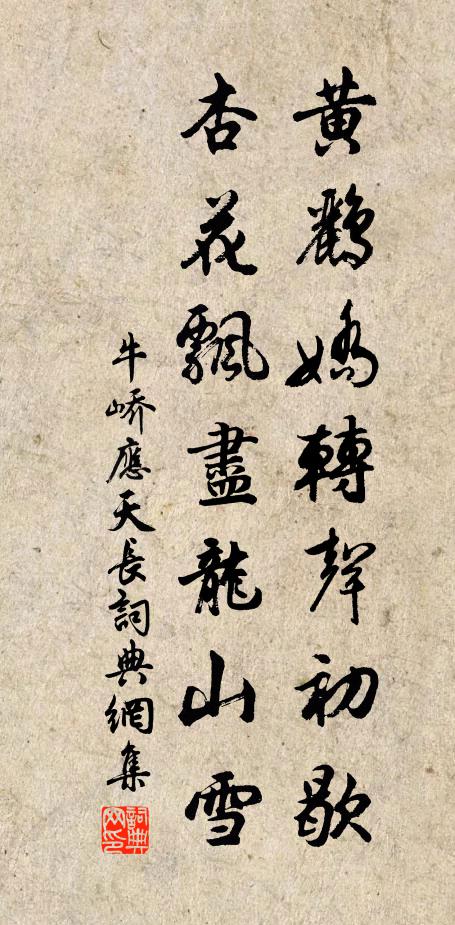 黄鸝嬌轉聲初歇
杏花飄盡龍山雪
牛嶠應天長詞典網集
詞典
网印